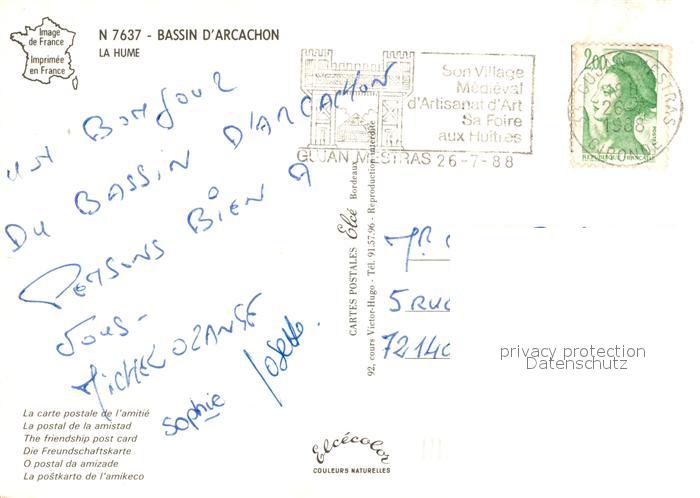 Image
de France
Imprimée
en France
N 7637 - BASSIN D'ARCACHON
LA HUME
Un Bonjour
Du BASSIN D'ARCACHON
Pensons Bien A
Vous-
Sophie Josette.
La carte postale de l'amitié
La postal de la amistad
The friendship post card
Die Freundschaftskarte
O postal da amizade
La poŝtkarto de l'amikeco
Elcécolor
COULEURS NATURELLES
CARTES POSTALES Elcé Bordeaux
92, cours Victor-Hugo - Tél. 91.57.96 - Reproduction interdite
Son Village
Médiéval
d'Artisanat d'Art
Sa Foire
aux Huîtres
GUJAN MESTRAS 26-7-88
2,00
REPUBLIQUE FRANÇAISE
GUJAN-MESTRAS
26-7
1988
GIRONDE
5 RUE
72140
privacy protection
Datenschutz